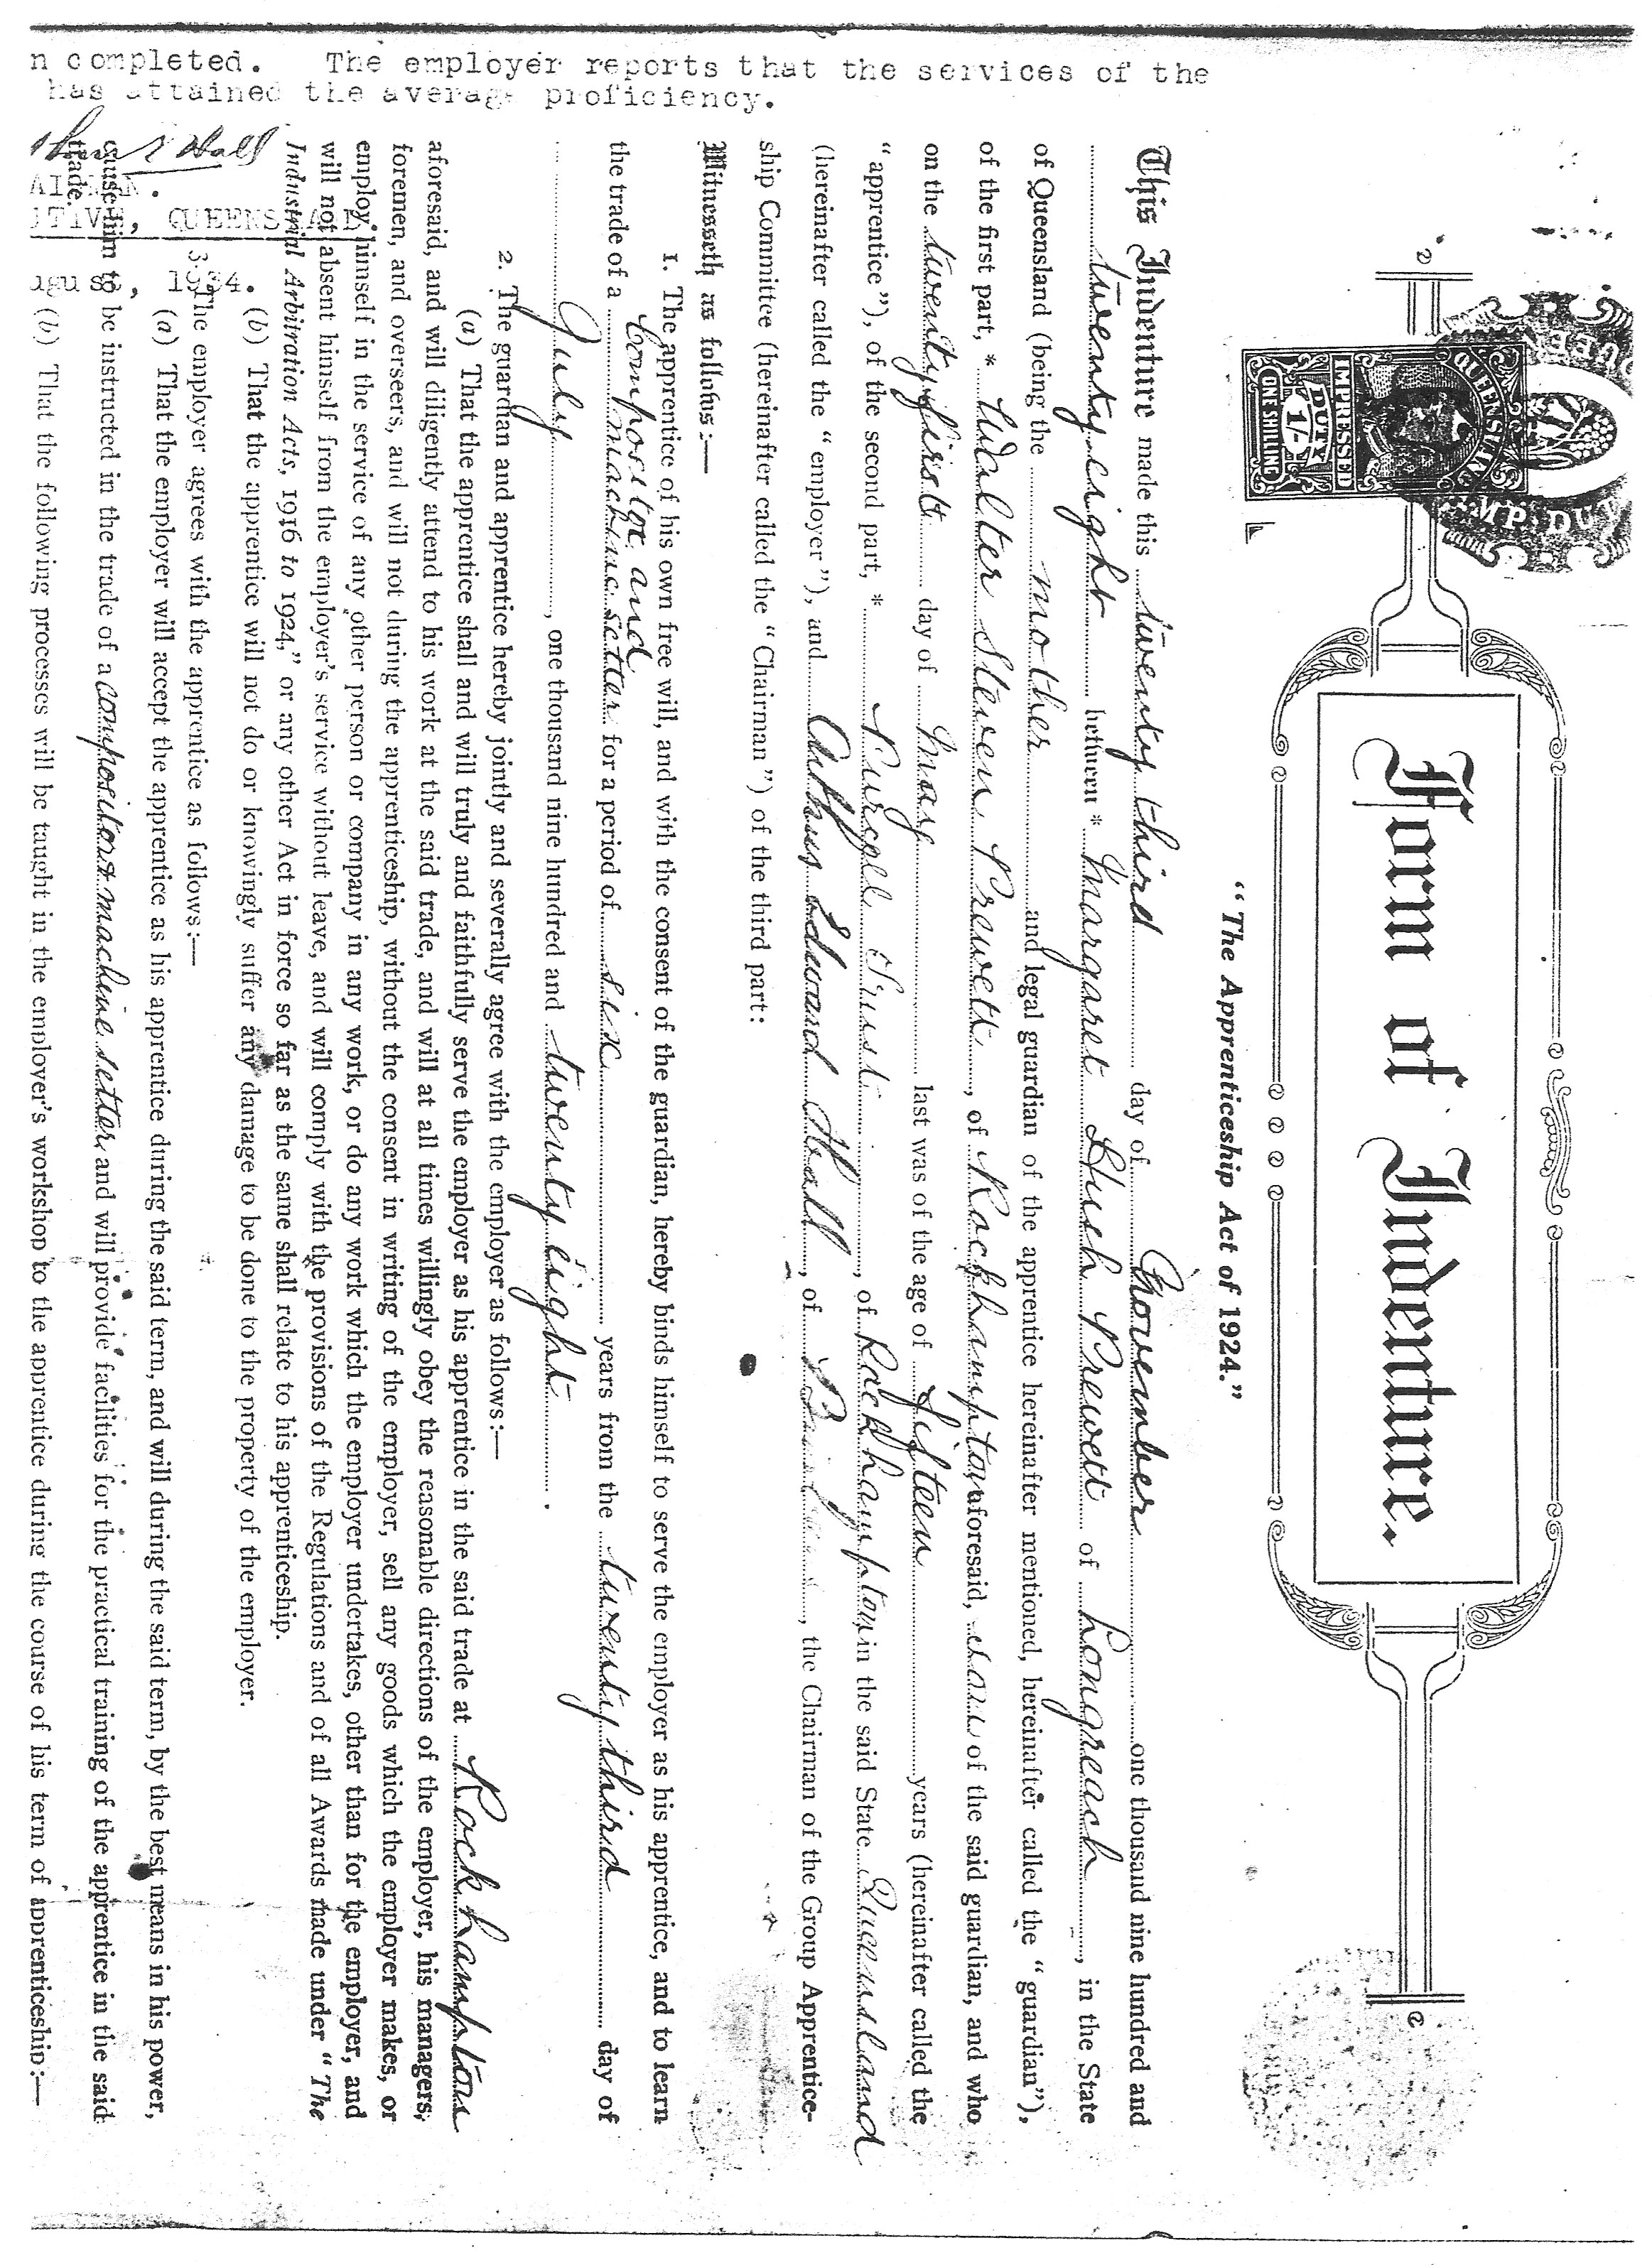 n completed. The employer reports that the services of the
has attained the average proficiency.
Hall
AIRMAN.
UTIVE, QUEENSLAND
ugust, 1934.
QUEENSLAND
IMPRESSED
DUTY
1/-
ONE SHILLING
Form of Indenture.
"The Apprenticeship Act of 1924."
This Indenture made this twenty third day of November one thousand nine hundred and
twenty eight between * Margaret Hush Prewett of Longreach, in the State
of Queensland (being the mother and legal guardian of the apprentice hereinafter mentioned, hereinafter called the "guardian"),
of the first part, * Walter Steven Prewett, of Rockhampton aforesaid, son of the said guardian, and who
on the twenty first day of May last was of the age of fifteen years (hereinafter called the
"apprentice"), of the second part, *, of Rockhampton in the said State Queensland
(hereinafter called the "employer"), and Arthur Edward Hall, of, the Chairman of the Group Apprentice-
ship Committee (hereinafter called the "Chairman") of the third part:
Witnesseth as follows:—
1. The apprentice of his own free will, and with the consent of the guardian, hereby binds himself to serve the employer as his apprentice, and to learn
the trade of a compositor and machine setter for a period of six years from the twenty third day of
July, one thousand nine hundred and twenty eight.
2. The guardian and apprentice hereby jointly and severally agree with the employer as follows:—
(a) That the apprentice shall and will truly and faithfully serve the employer as his apprentice in the said trade at Rockhampton
aforesaid, and will diligently attend to his work at the said trade, and will at all times willingly obey the reasonable directions of the employer, his managers,
foremen, and overseers, and will not during the apprenticeship, without the consent in writing of the employer, sell any goods which the employer makes, or
employ himself in the service of any other person or company in any work, or do any work which the employer undertakes, other than for the employer, and
will not absent himself from the employer's service without leave, and will comply with the provisions of the Regulations and of all Awards made under "The
Industrial Arbitration Acts, 1916 to 1924," or any other Act in force so far as the same shall relate to his apprenticeship.
(b) That the apprentice will not do or knowingly suffer any damage to be done to the property of the employer.
3. The employer agrees with the apprentice as follows:—
(a) That the employer will accept the apprentice as his apprentice during the said term, and will during the said term, by the best means in his power,
cause him to be instructed in the trade of a compositor & machine setter and will provide facilities for the practical training of the apprentice in the said
trade.
(b) That the following processes will be taught in the employer's workshop to the apprentice during the course of his term of apprenticeship:—